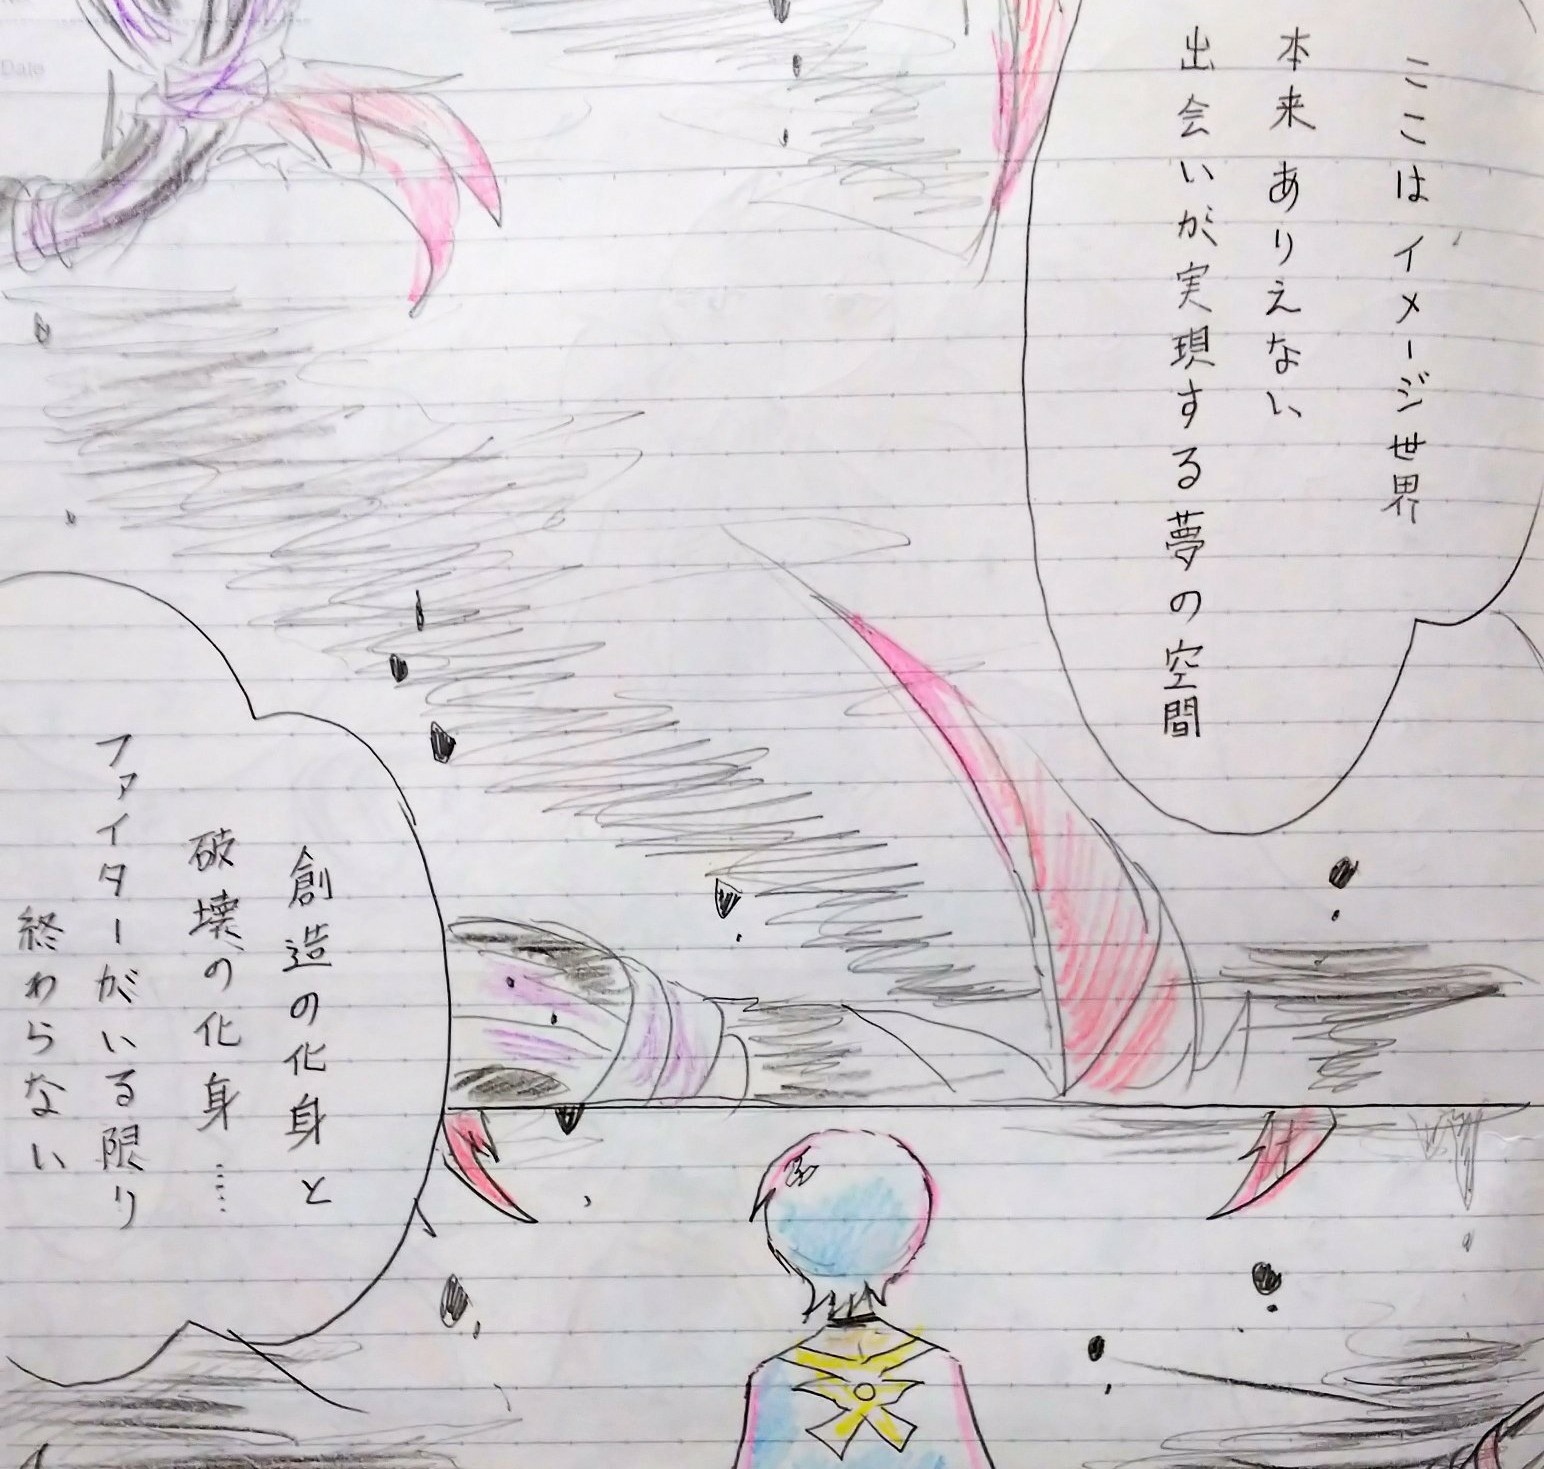 ここはイメージ世界
本来ありえない
出会いが実現する夢の空間
創造の化身と
破壊の化身……
ファイターがいる限り
終わらない
Date